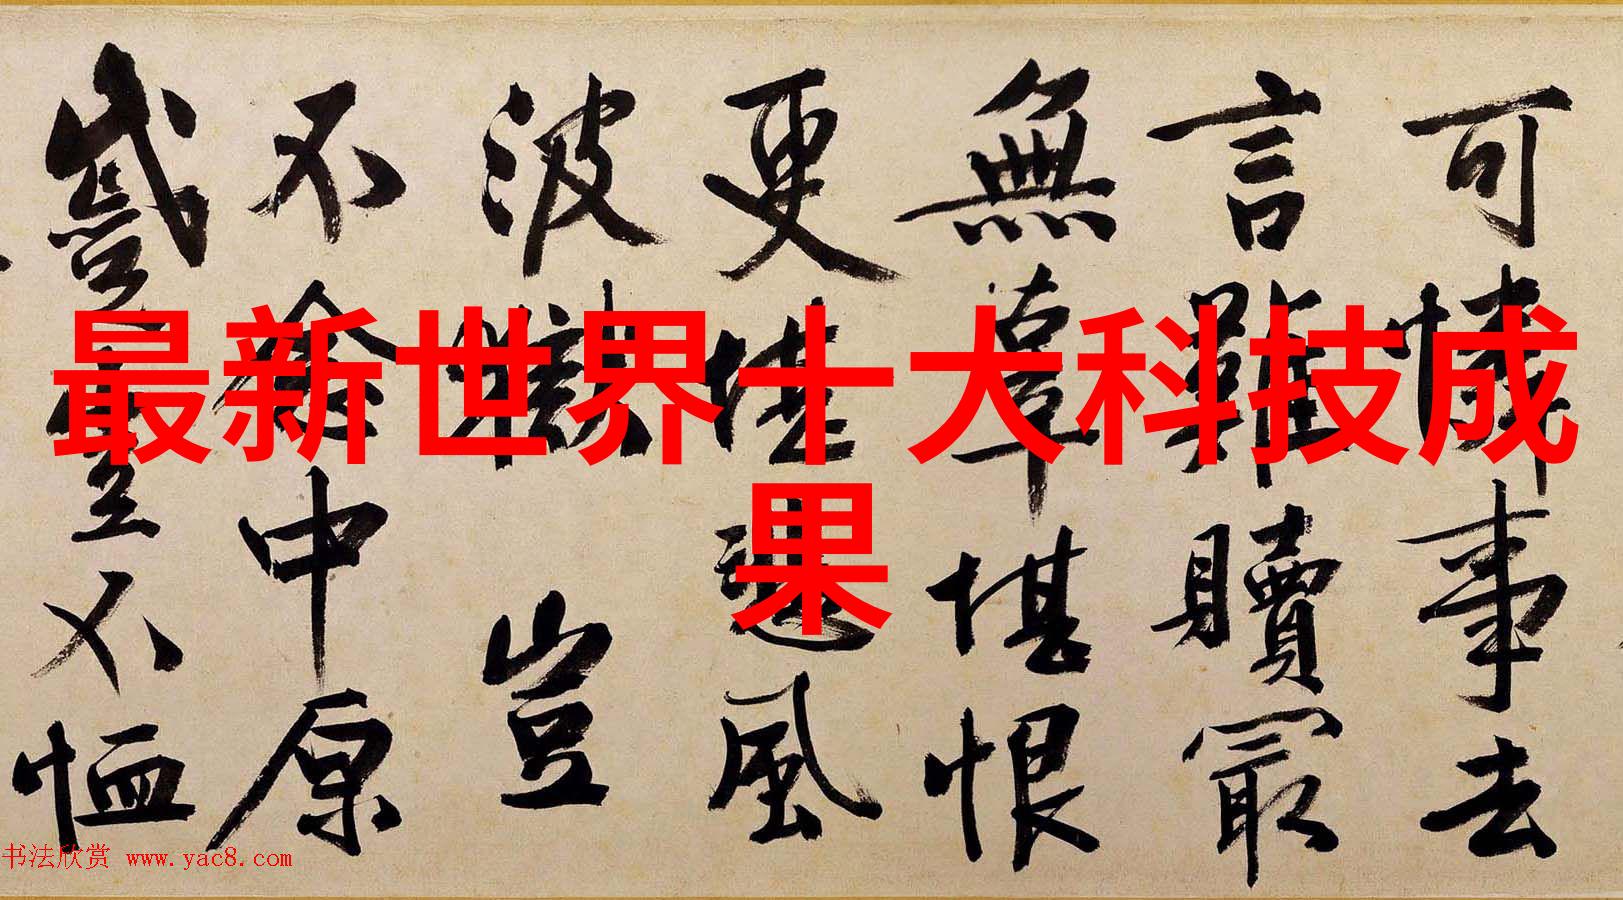 最新世界十大科技成
果
可憐事去
言難贖冣
無辜堪恨
更風
波獄豈
不念中原
蹙豈不恤
书法欣赏 www.yac8.com